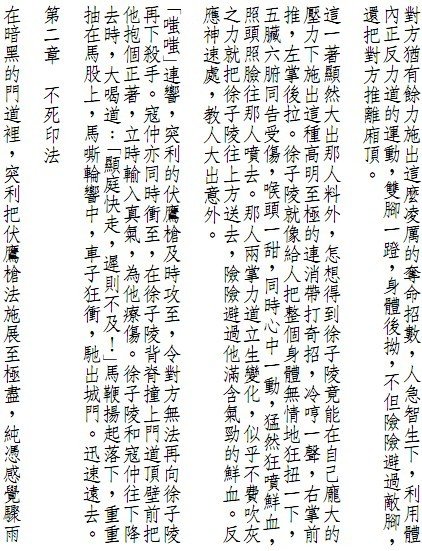 對方猶有餘力施出這麼凌厲的奪命招數，人急智生下，利用體
內正反力道的運動，雙腳一蹬，身體後拗，不但險險避過敵腳，
還把對方推離廂頂。
這一著顯然大出那人料外，怎想得到徐子陵竟能在自己龐大的
壓力下施出這種高明至極的連消帶打奇招，冷哼一聲，右掌前
推，左掌後拉。徐子陵就像給人把整個身體無情地狂扭一下，
五臟六腑同告受傷，喉頭一甜，同時心中一動，猛然狂噴鮮血，
照頭照臉往那人噴去。那人兩掌力道立生變化，似乎不費吹灰
之力就把徐子陵往上方送去，險險避過他滿含氣勁的鮮血。反
應神速處，教人大出意外。
「嗤嗤」連響，突利的伏鷹槍及時攻至，令對方無法再向徐子陵
再下殺手。寇仲亦同時衝至，在徐子陵背脊撞上門道頂壁前把
他抱個正著，立時輸入真氣，為他療傷。徐子陵和寇仲往下降
去時，大喝道：「顯庭快走，遲則不及！」馬鞭揚起落下，重重
抽在馬股上，馬嘶輪響中，車子狂衝，馳出城門。迅速遠去。
第二章　不死印法
在暗黑的門道裡，突利把伏鷹槍法施展至極盡，純憑感覺驟雨